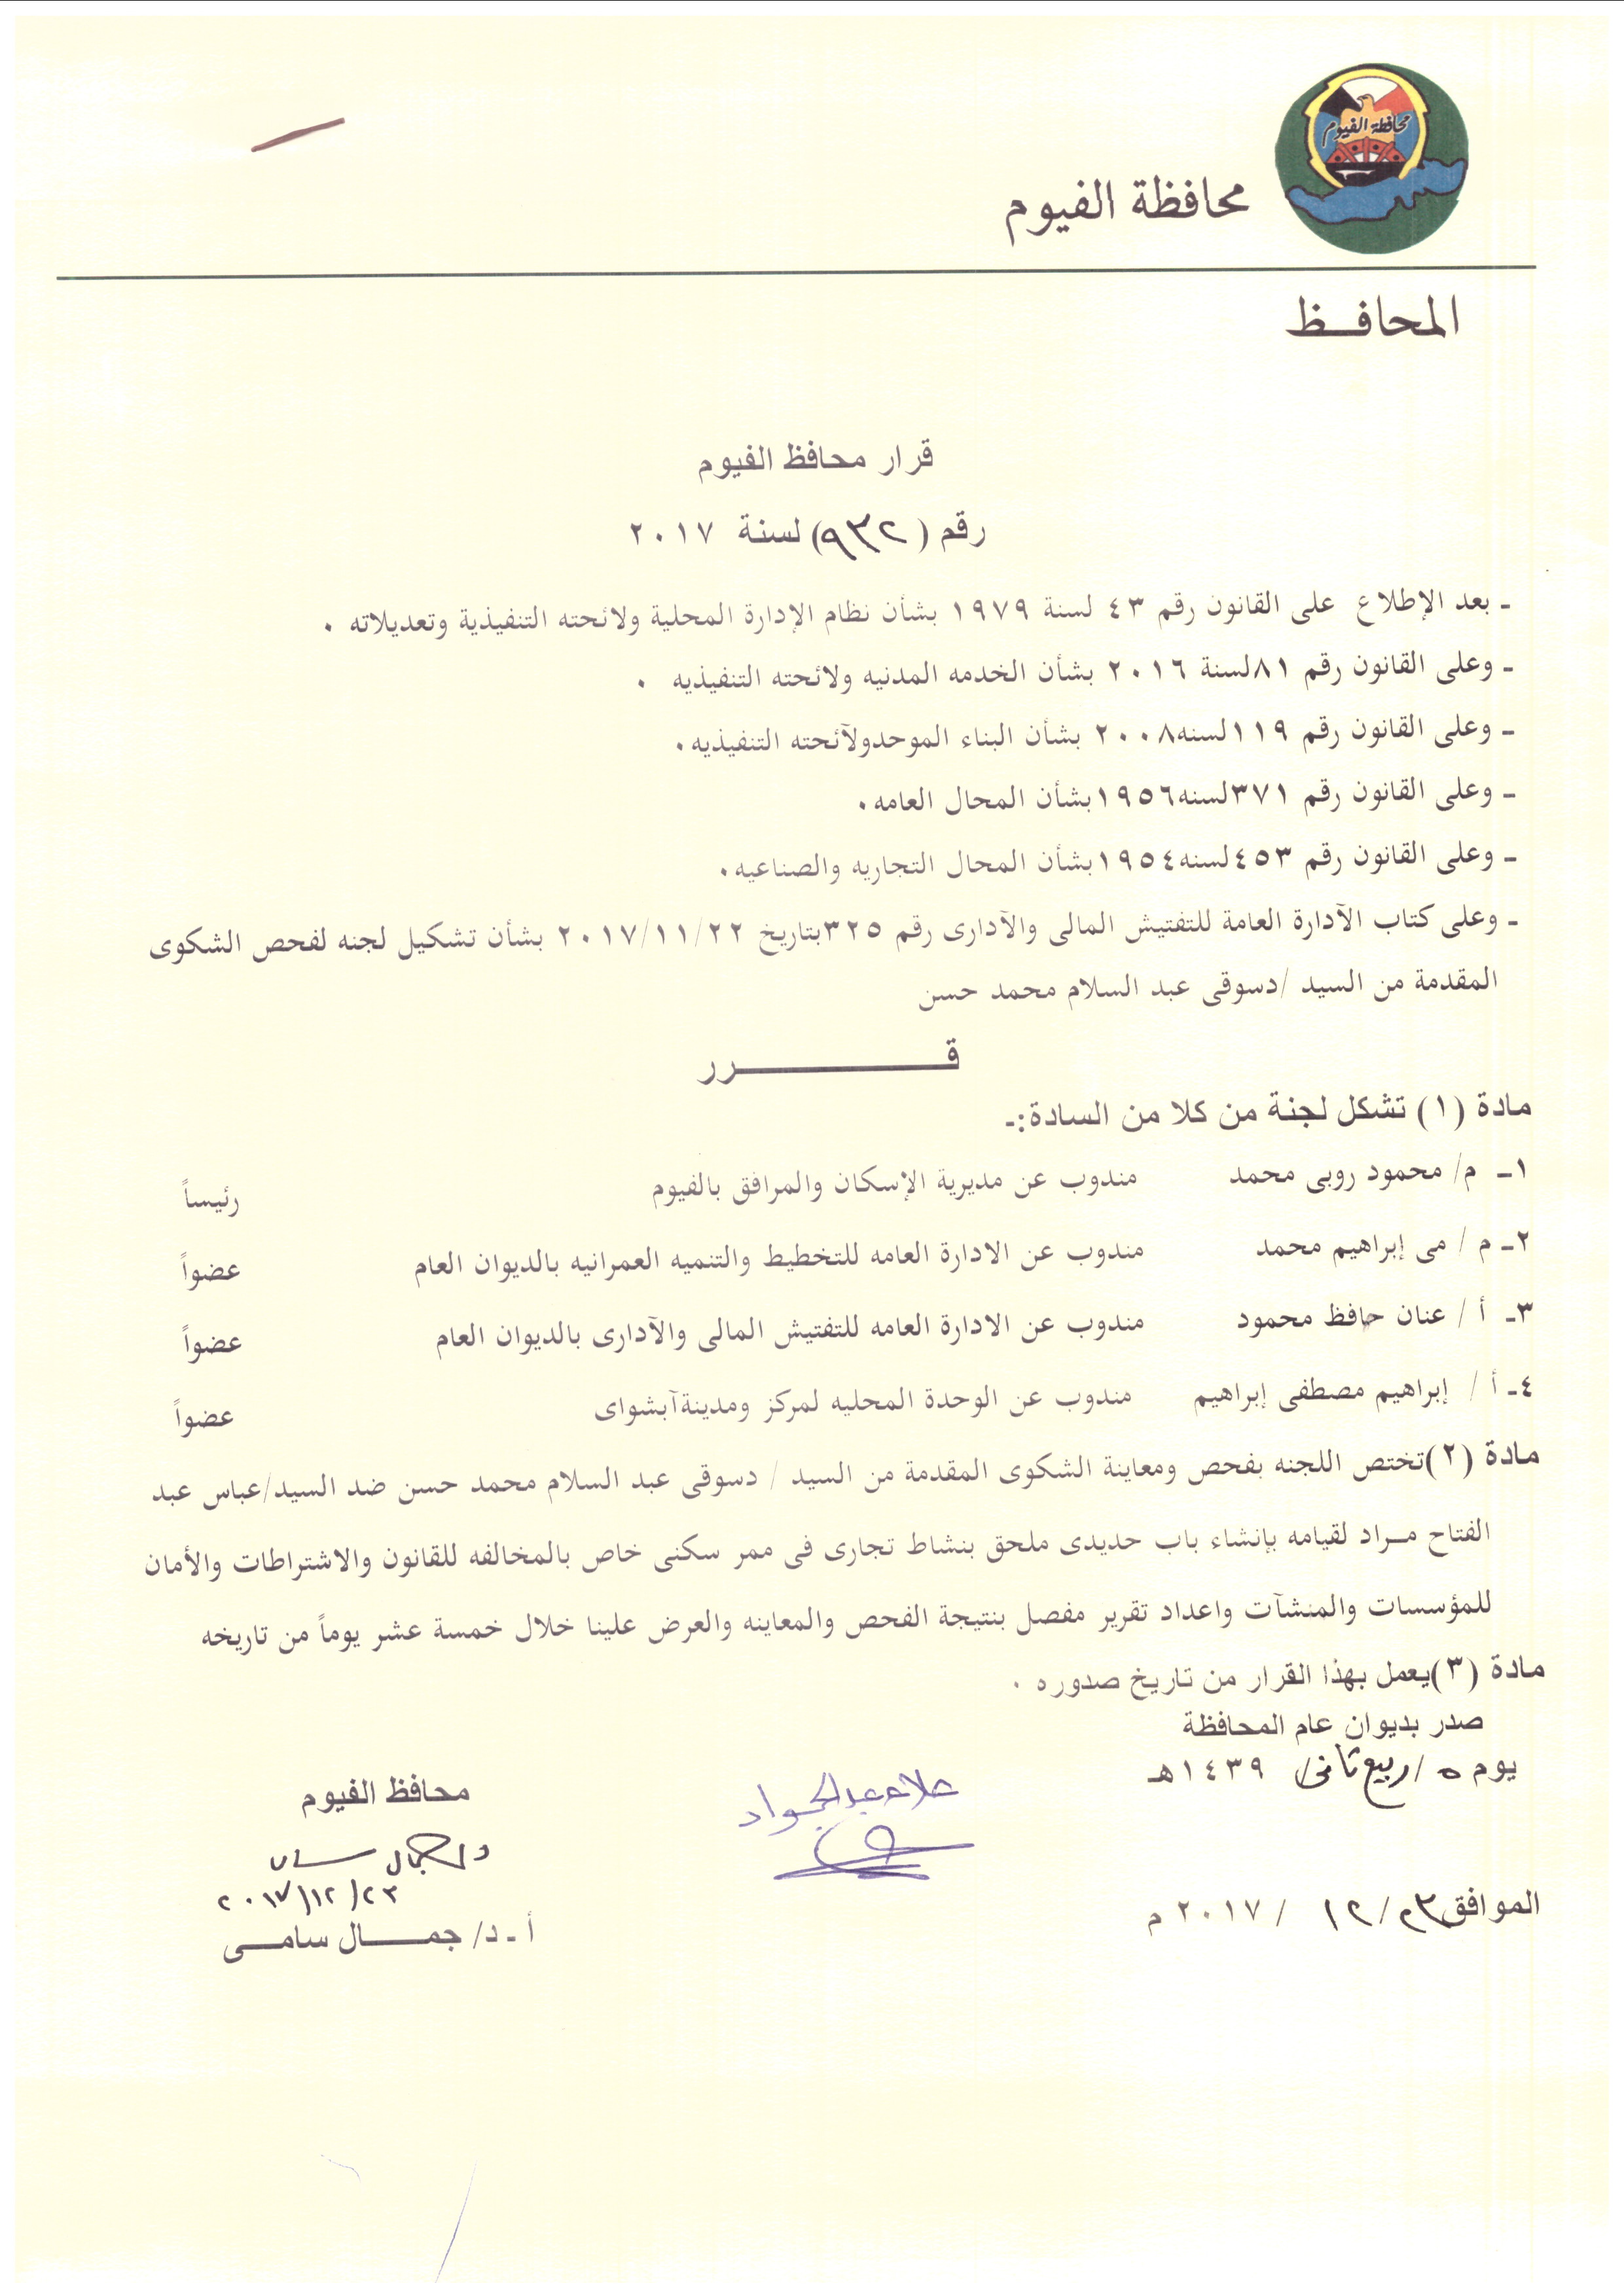 محافظة الفيوم
محافظة الفيوم
المحافــظ
قرار محافظ الفيوم
رقم (٩٣٢) لسنة ٢٠١٧
ـ بعد الإطلاع على القانون رقم ٤٣ لسنة ١٩٧٩ بشأن نظام الإدارة المحلية ولائحته التنفيذية وتعديلاته ٠
ـ وعلى القانون رقم ٨١لسنة ٢٠١٦ بشأن الخدمه المدنيه ولائحته التنفيذيه ٠
ـ وعلى القانون رقم ١١٩لسنه٢٠٠٨ بشأن البناء الموحدولآئحته التنفيذيه٠
ـ وعلى القانون رقم ٣٧١لسنه١٩٥٦بشأن المحال العامه٠
ـ وعلى القانون رقم ٤٥٣لسنه١٩٥٤بشأن المحال التجاريه والصناعيه٠
ـ وعلى كتاب الآدارة العامة للتفتيش المالى والآدارى رقم ٣٢٥بتاريخ ٢٠١٧/١١/٢٢ بشأن تشكيل لجنه لفحص الشكوى
المقدمة من السيد /دسوقى عبد السلام محمد حسن
قــــــــــرر
مادة (١) تشكل لجنة من كلا من السادة:ـ
١ـ م/ محمود روبى محمد مندوب عن مديرية الإسكان والمرافق بالفيوم رئيساً
٢ـ م / مى إبراهيم محمد مندوب عن الادارة العامه للتخطيط والتنميه العمرانيه بالديوان العام عضواً
٣ـ أ / عنان حافظ محمود مندوب عن الادارة العامه للتفتيش المالى والآدارى بالديوان العام عضواً
٤ـ أ / إبراهيم مصطفى إبراهيم مندوب عن الوحدة المحليه لمركز ومدينةآبشواى عضواً
مادة (٢)تختص اللجنه بفحص ومعاينة الشكوى المقدمة من السيد / دسوقى عبد السلام محمد حسن ضد السيد/عباس عبد
الفتاح مـراد لقيامه بإنشاء باب حديدى ملحق بنشاط تجارى فى ممر سكنى خاص بالمخالفه للقانون والاشتراطات والأمان
للمؤسسات والمنشآت واعداد تقرير مفصل بنتيجة الفحص والمعاينه والعرض علينا خلال خمسة عشر يوماً من تاريخه
مادة (٣)يعمل بهذا القرار من تاريخ صدوره ٠
صدر بديوان عام المحافظة
يوم ٥ /ربيع ثانى/ ١٤٣٩هـ
الموافق /١٢ / ٢٠١٧ م
علاء عبد الجواد
محافظ الفيوم
د/ جمال سامى
٢٠١٧/١٢/٢٣
أ ـ د/ جمــــال سامــــى